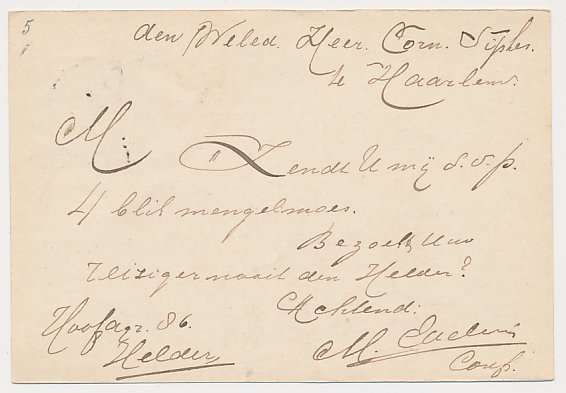 5
den Weled. Heer. Corn.
te Haarlem.
M.
Zendt U mij s.v.p.
4 blik mengelmoes.
Bezoekt Uw
reiziger nooit den Helder?
Achtend:
Hoofdgr. 86.
Helder
M.
Conf.